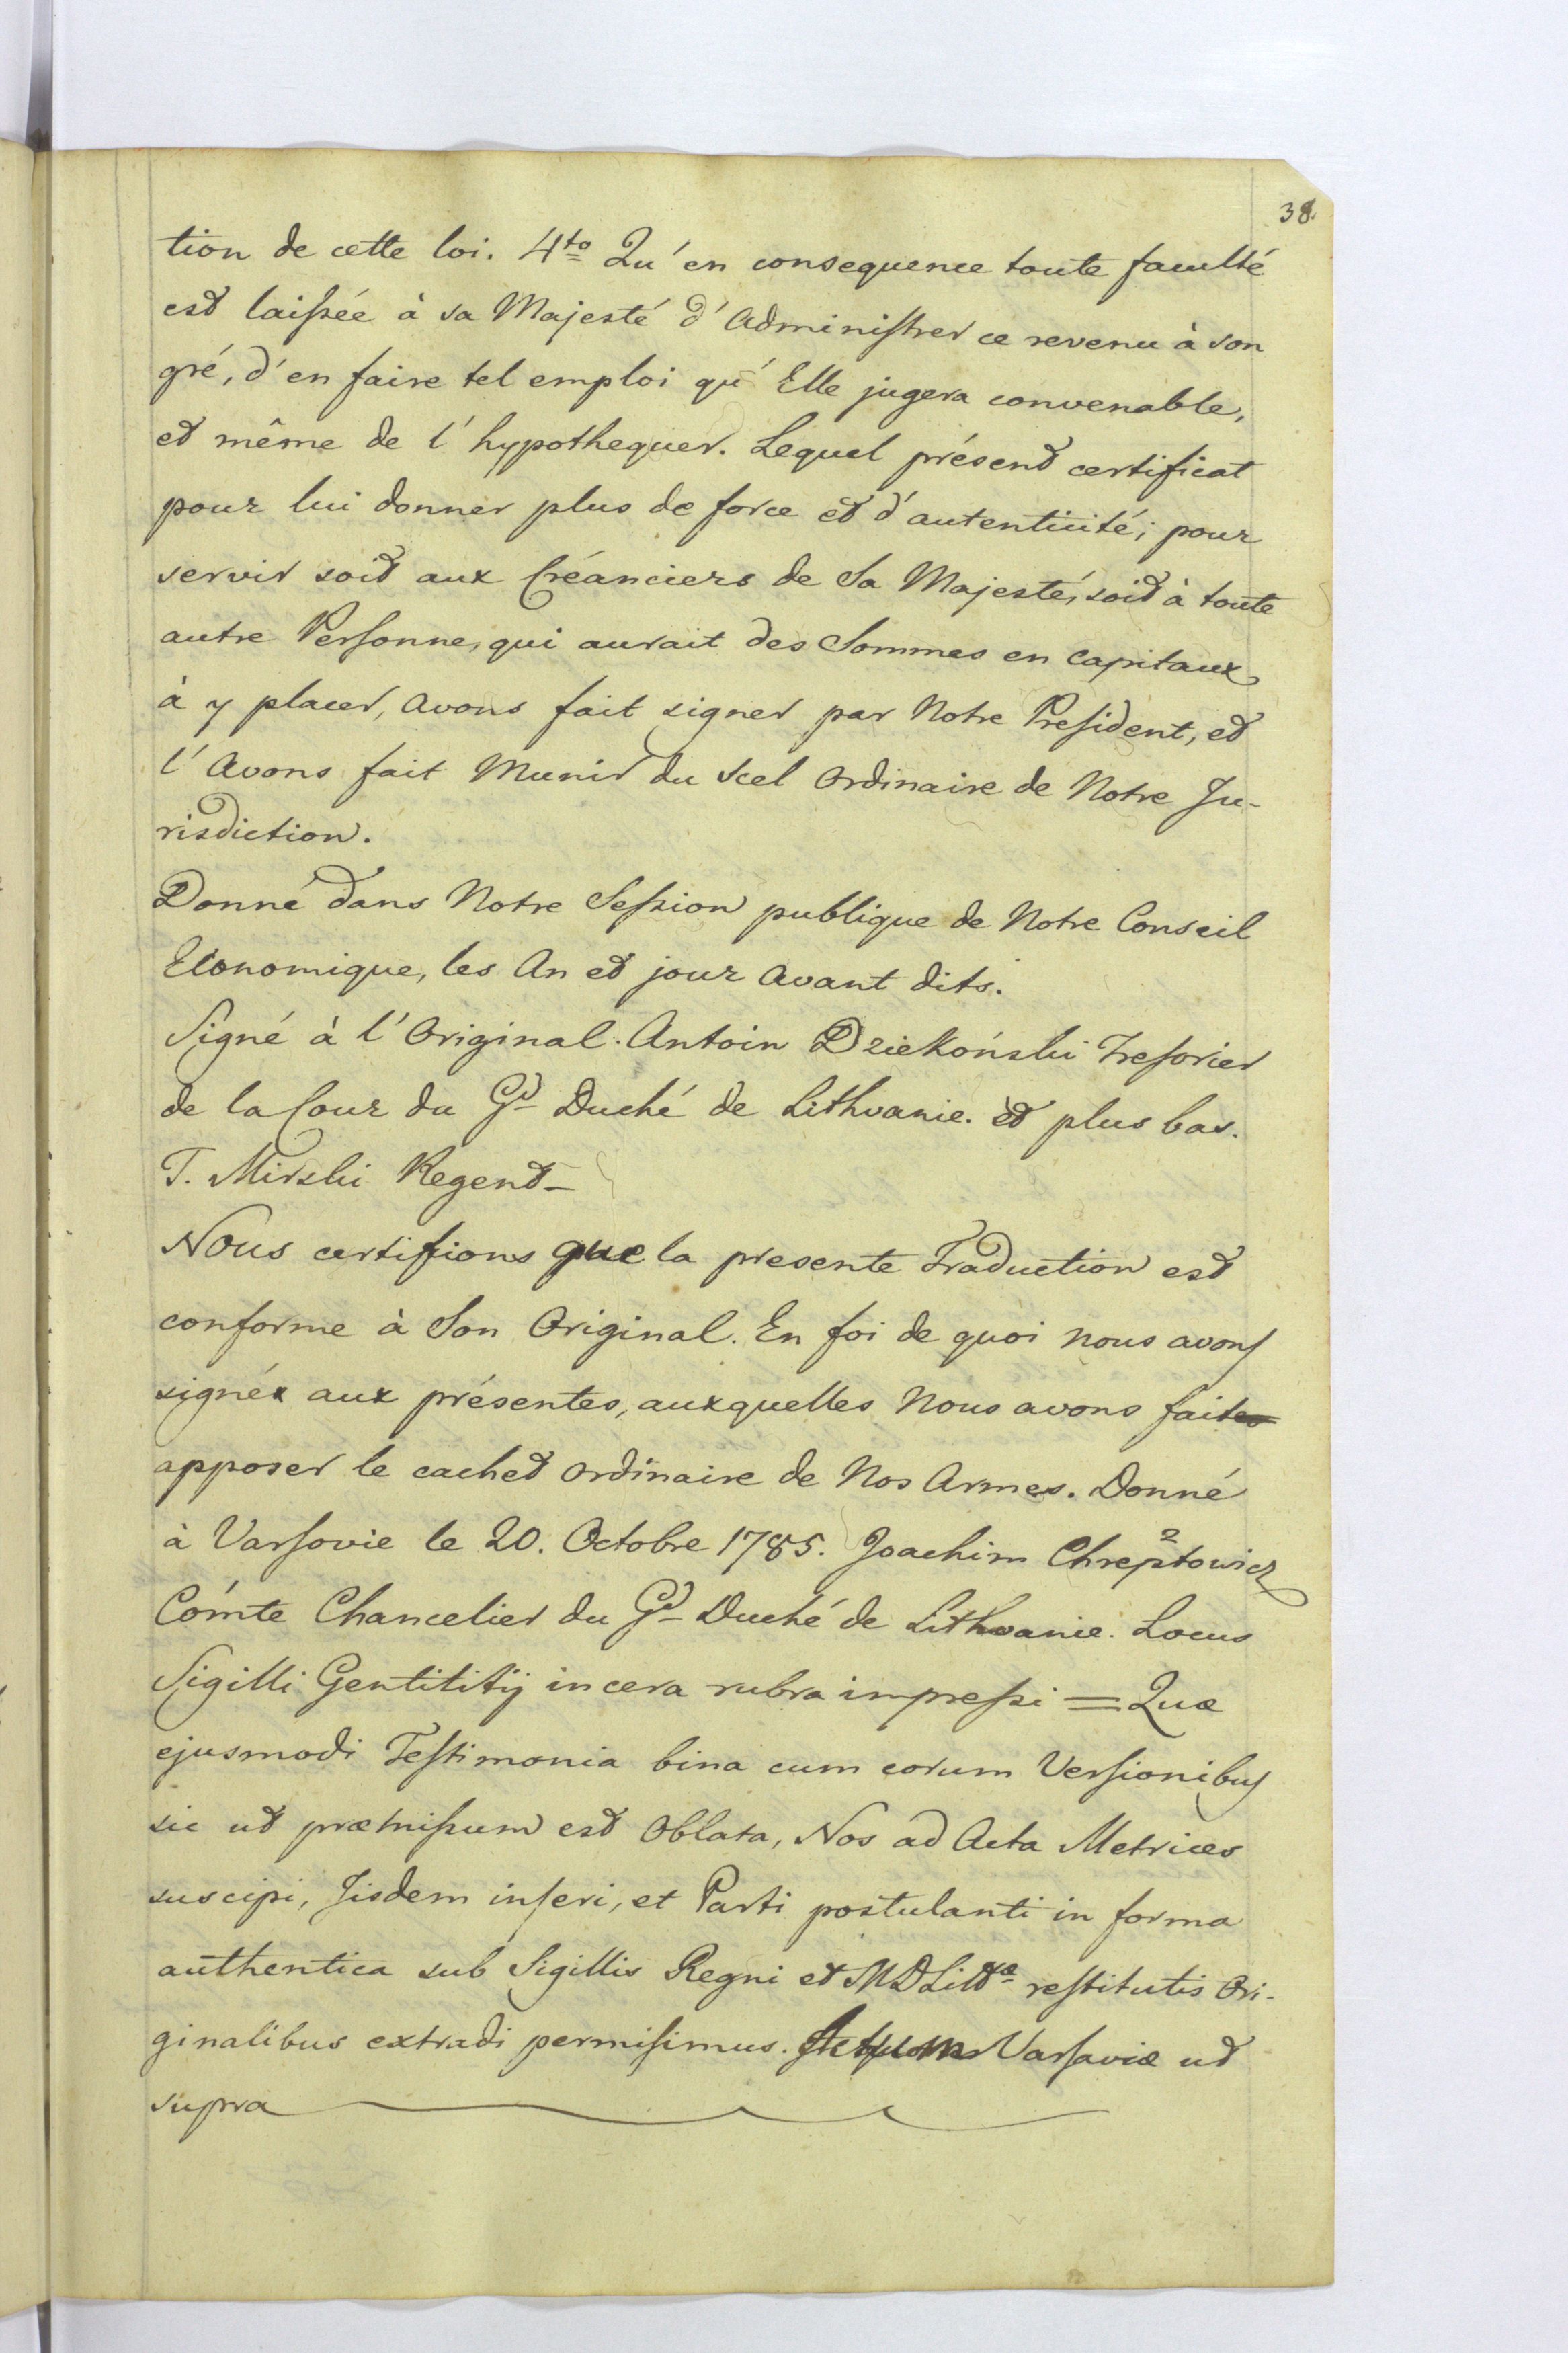 38.
tion de cette loi. 4to Qu'en consequence toute faculté
est laissée à sa Majesté d'Administrer ce revenu à son
gré, d'en faire tel emploi qu'Elle jugera convenable,
et même de l'hypothequer. Lequel présent certificat
pour lui donner plus de force et d'autenticité; pour
servir soit aux Créanciers de Sa Majesté, soit à toute
autre Personne, qui aurait des Sommes en capitaux
à y placer, avons fait signer par Notre President, et
l'Avons fait Munir du Scel Ordinaire de Notre Ju-
risdiction.
Donné dans Notre Session publique de Notre Conseil
Economique, les An et jour avant dits.
Signé à l'Original. Antoin Dziekoński Tresorier
de la Cour du Gd Duché de Lithvanie. et plus bas.
T. Mirski Regent
Nous certifions que la presente Traduction est
conforme à Son Original. En foi de quoi nous avons
signéx aux présentes, auxquelles Nous avons faites
apposer le cachet ordinaire de Nos Armes. Donné
à Varsovie le 20. Octobre 1785. Joachim Chreptowicz
Comte Chancelier du Gd Duché de Lithvanie. Locus
Sigilli Gentilitij in cera rubra impressi = Quæ
ejusmodi Testimonia bina cum eorum Versionibus
sic ut præmissum est Oblata, Nos ad Acta Metrices
suscipi, Jisdem inseri, et Parti postulanti in forma
authentica sub Sigillis Regni et MDLittæ restitutis Ori-
ginalibus extradi permisimus. Actum Varsaviæ ut
supra